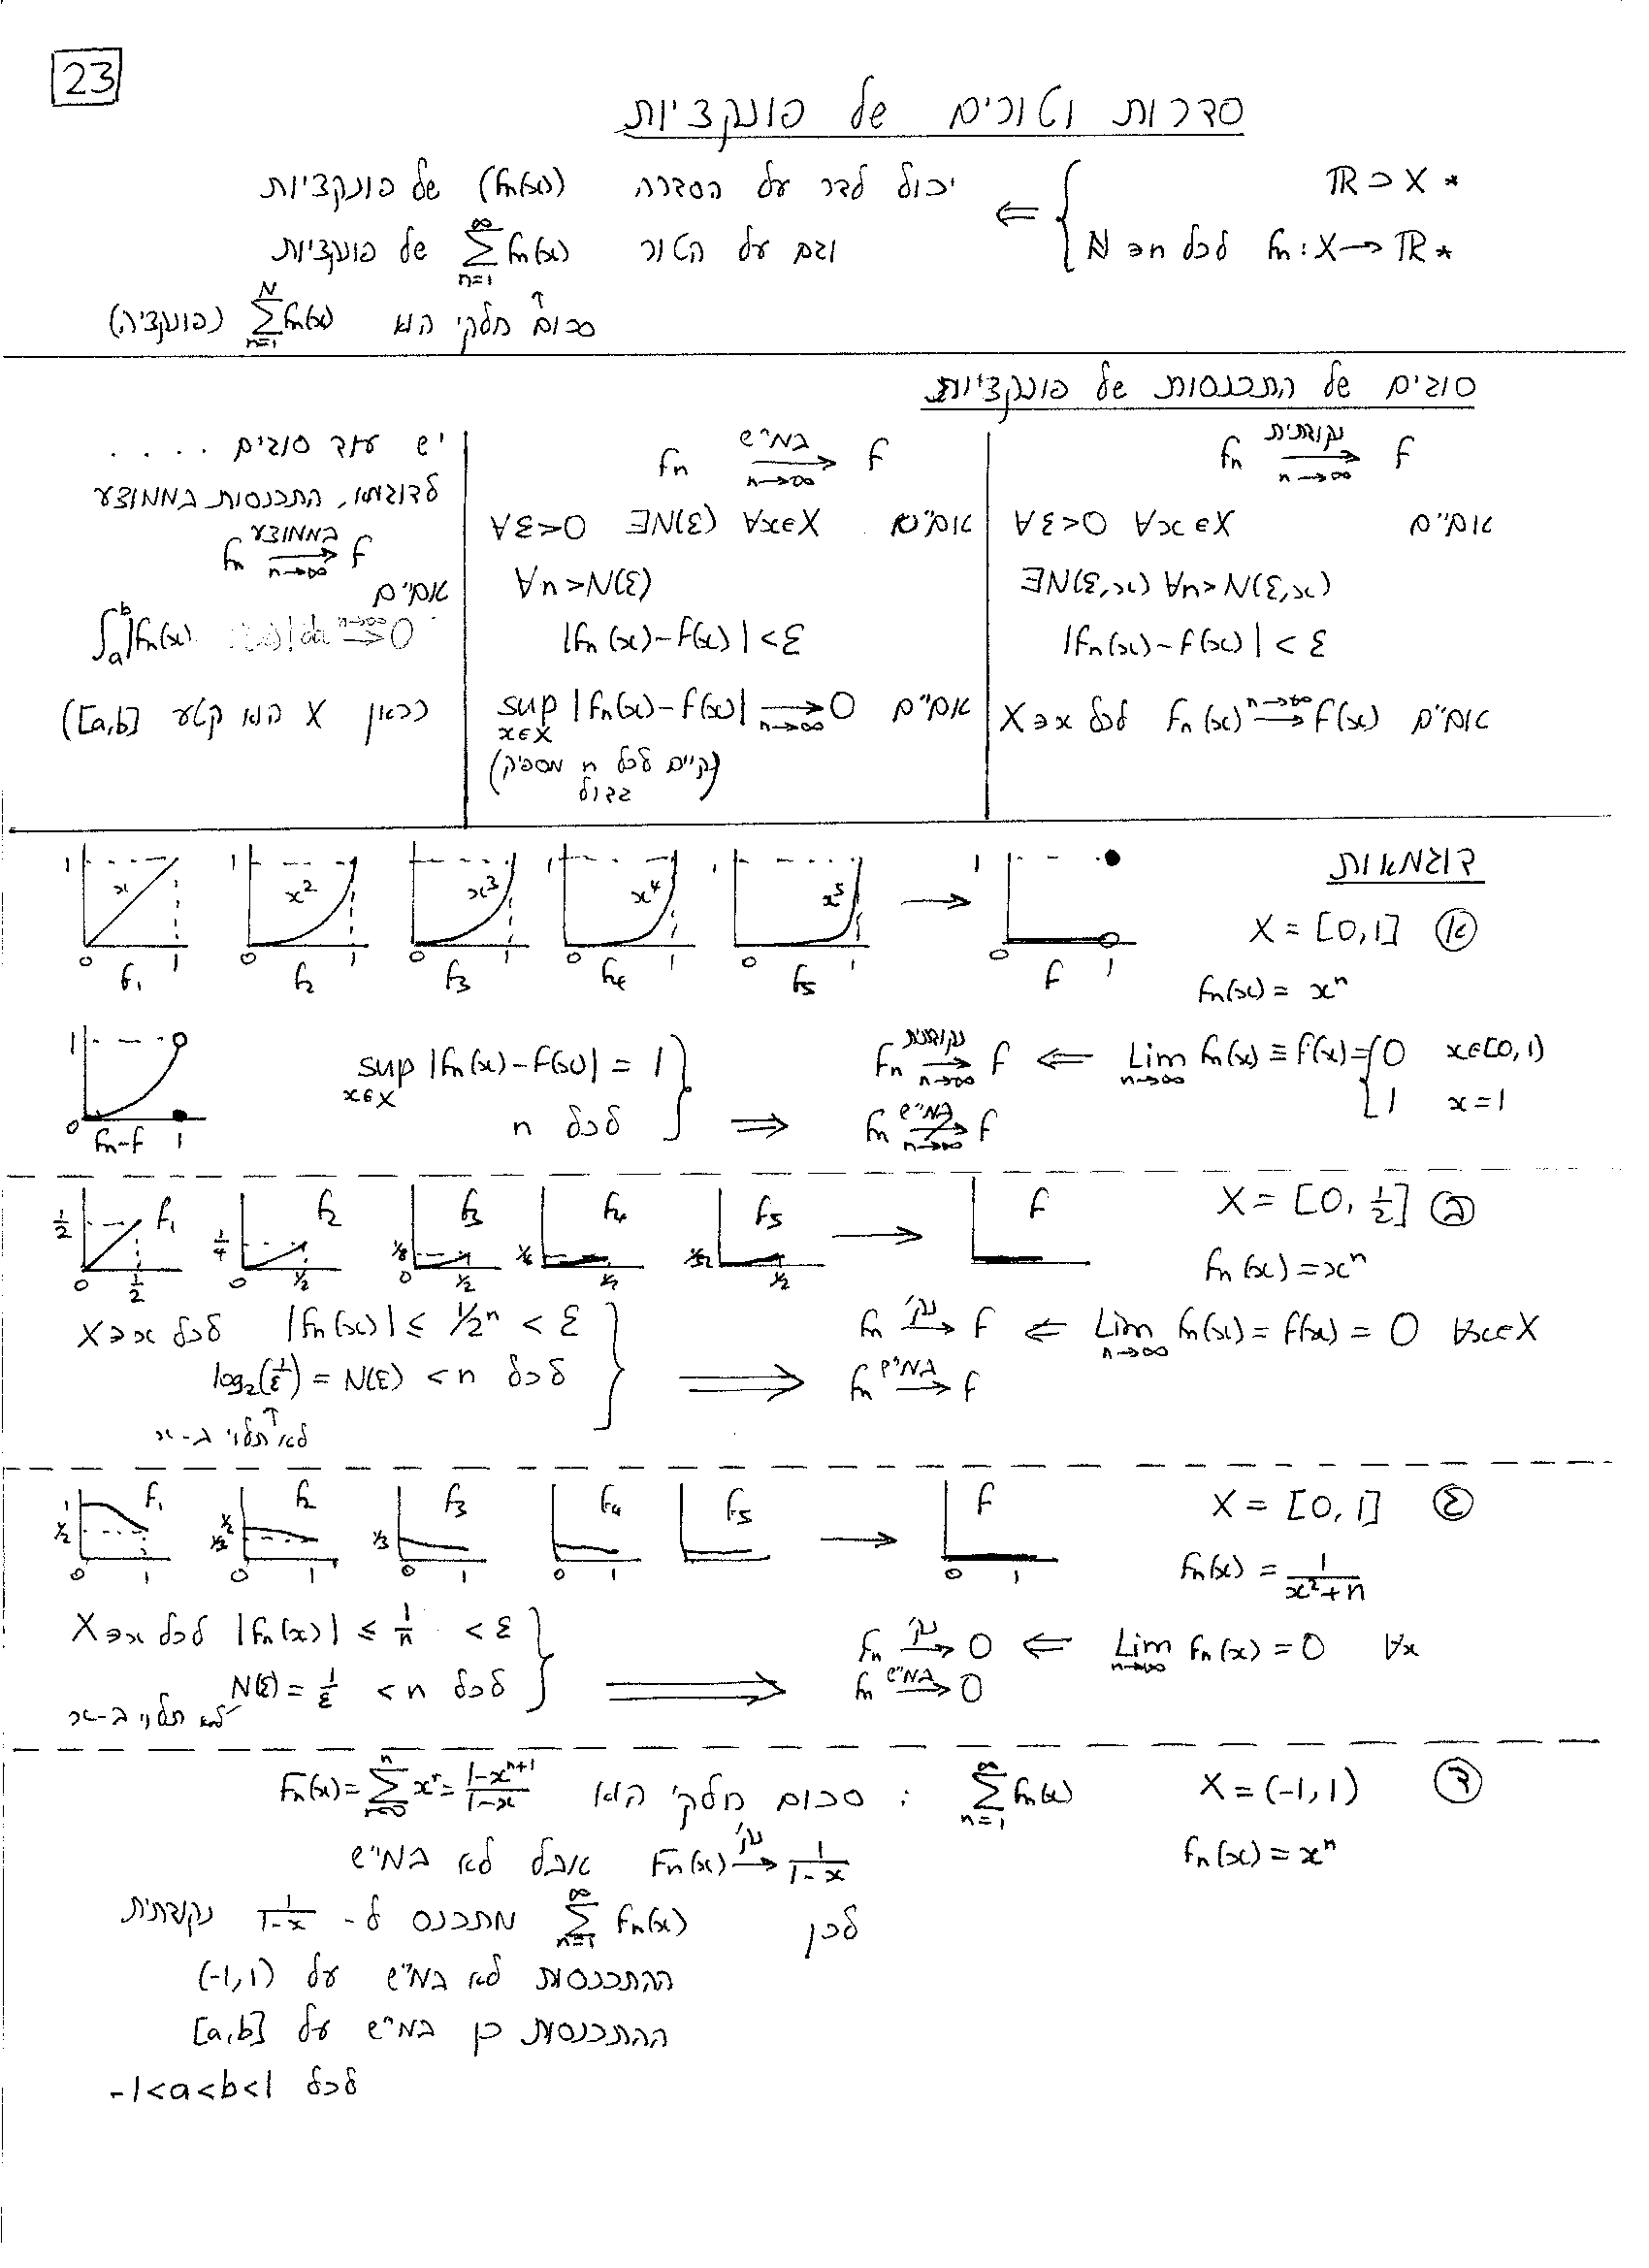 23
סדרות וטורים של פונקציות
* X ⊂ ℝ
* fn: X → ℝ לכל n ∈ ℕ
⇐ יכול לדבר על הסדרה (fn(x)) של פונקציות
וגם על הטור ∑_{n=1}^{∞} fn(x) של פונקציות
↑ סכום חלקי הוא ∑_{n=1}^{N} fn(x) (פונקציה)
סוגים של התכנסות של פונקציות
fn —נקודתית→ f n→∞
אם״ם ∀ε>0 ∀x∈X
∃N(ε,x) ∀n>N(ε,x)
|fn(x)-f(x)| < ε
אם״ם fn(x) →^{n→∞} f(x) לכל x∈X
fn —במ״ש→ f n→∞
אם״ם ∀ε>0 ∃N(ε) ∀x∈X
∀n>N(ε)
|fn(x)-f(x)| < ε
אם״ם sup_{x∈X} |fn(x)-f(x)| →_{n→∞} 0
(קיים לכל n מספיק
גדול)
יש עוד סוגים ....
לדוגמא, התכנסות בממוצע
fn —בממוצע→ f n→∞
אם״ם
∫_a^b |fn(x) f(x)| dx →^{n→∞} 0
(כאן X הוא קטע [a,b])
דוגמאות
א X = [0,1]
fn(x) = x^n
1 x 0 1 f1
1 x^2 0 1 f2
1 x^3 0 1 f3
1 x^4 0 1 f4
1 x^5 0 1 f5
→ 1 0 1 f
Lim_{n→∞} fn(x) ≡ f(x) = { 0 x∈[0,1)
1 x=1
⇒ fn —נקודתית→ f n→∞
1 0 fn-f 1
sup_{x∈X} |fn(x)-f(x)| = 1
לכל n
⇒ fn —במ״ש↛ f n→∞
ב X = [0, 1/2]
fn(x) = x^n
1/2 f1 0 1/2
1/4 f2 0 1/2
1/8 f3 0 1/2
f4 1/2
f5 1/2
→ f
Lim_{n→∞} fn(x) = f(x) = 0 ∀x∈X
⇒ fn —נק'→ f
|fn(x)| ≤ 1/2^n < ε לכל x∈X
לכל n > N(ε) = log2(1/ε)
↑ לא תלוי ב-x
⇒ fn —במ״ש→ f
ג X = [0,1]
fn(x) = 1/(x^2+n)
1 1/2 f1 0 1
1/2 1/3 f2 0 1
1/3 f3 0 1
f4 0 1
f5
→ f 0 1
Lim_{n→∞} fn(x) = 0 ∀x
⇒ fn —נק'→ 0
|fn(x)| ≤ 1/n < ε לכל x∈X
לכל n > N(ε) = 1/ε
לא תלוי ב-x
⇒ fn —במ״ש→ 0
ד X = (-1,1)
fn(x) = x^n
∑_{n=1}^{∞} fn(x) : סכום חלקי הוא Fn(x) = ∑_{r=0}^{n} x^r = (1-x^{n+1})/(1-x)
Fn(x) —נק'→ 1/(1-x) אבל לא במ״ש
לכן ∑_{n=1}^{∞} fn(x) מתכנס ל- 1/(1-x) נקודתית
ההתכנסות לא במ״ש על (-1,1)
ההתכנסות כן במ״ש על [a,b]
לכל -1<a<b<1